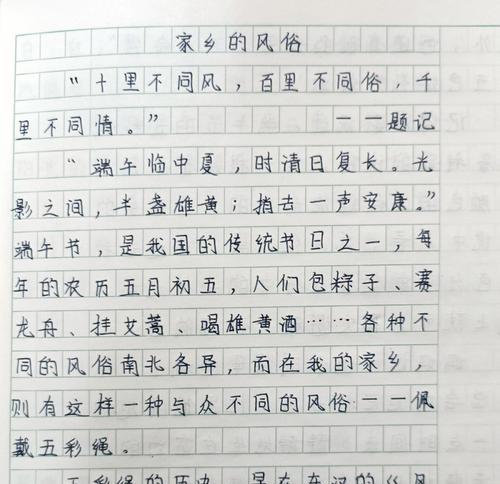 家乡的风俗
“十里不同风，百里不同俗，千
里不同情。” ——题记
“端午临中夏，时清日复长。光
影之间，半盏雄黄；捎去一声安康。”
端午节，是我国的传统节日之一，每
年的农历五月初五，人们包粽子、赛
龙舟、挂艾蒿、喝雄黄酒……各种不
同的风俗南北各异，而在我的家乡，
则有这样一种与众不同的风俗——佩
戴五彩绳。
五彩绳的历史，是在东汉的《风